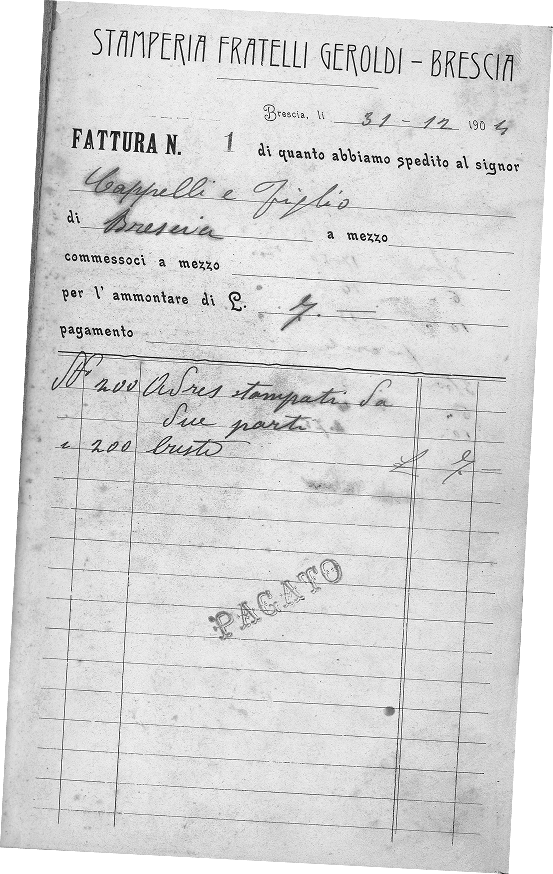 STAMPERIA FRATELLI GEROLDI – BRESCIA
Brescia, li 31 - 12 1904
FATTURA N. 1 di quanto abbiamo spedito al signor
Cappelli e Figlio
di Brescia a mezzo
commessoci a mezzo
per l' ammontare di L. 7. —
pagamento
N° 200 Adres stampati da
due parti
e 200 buste L 7 —
PAGATO